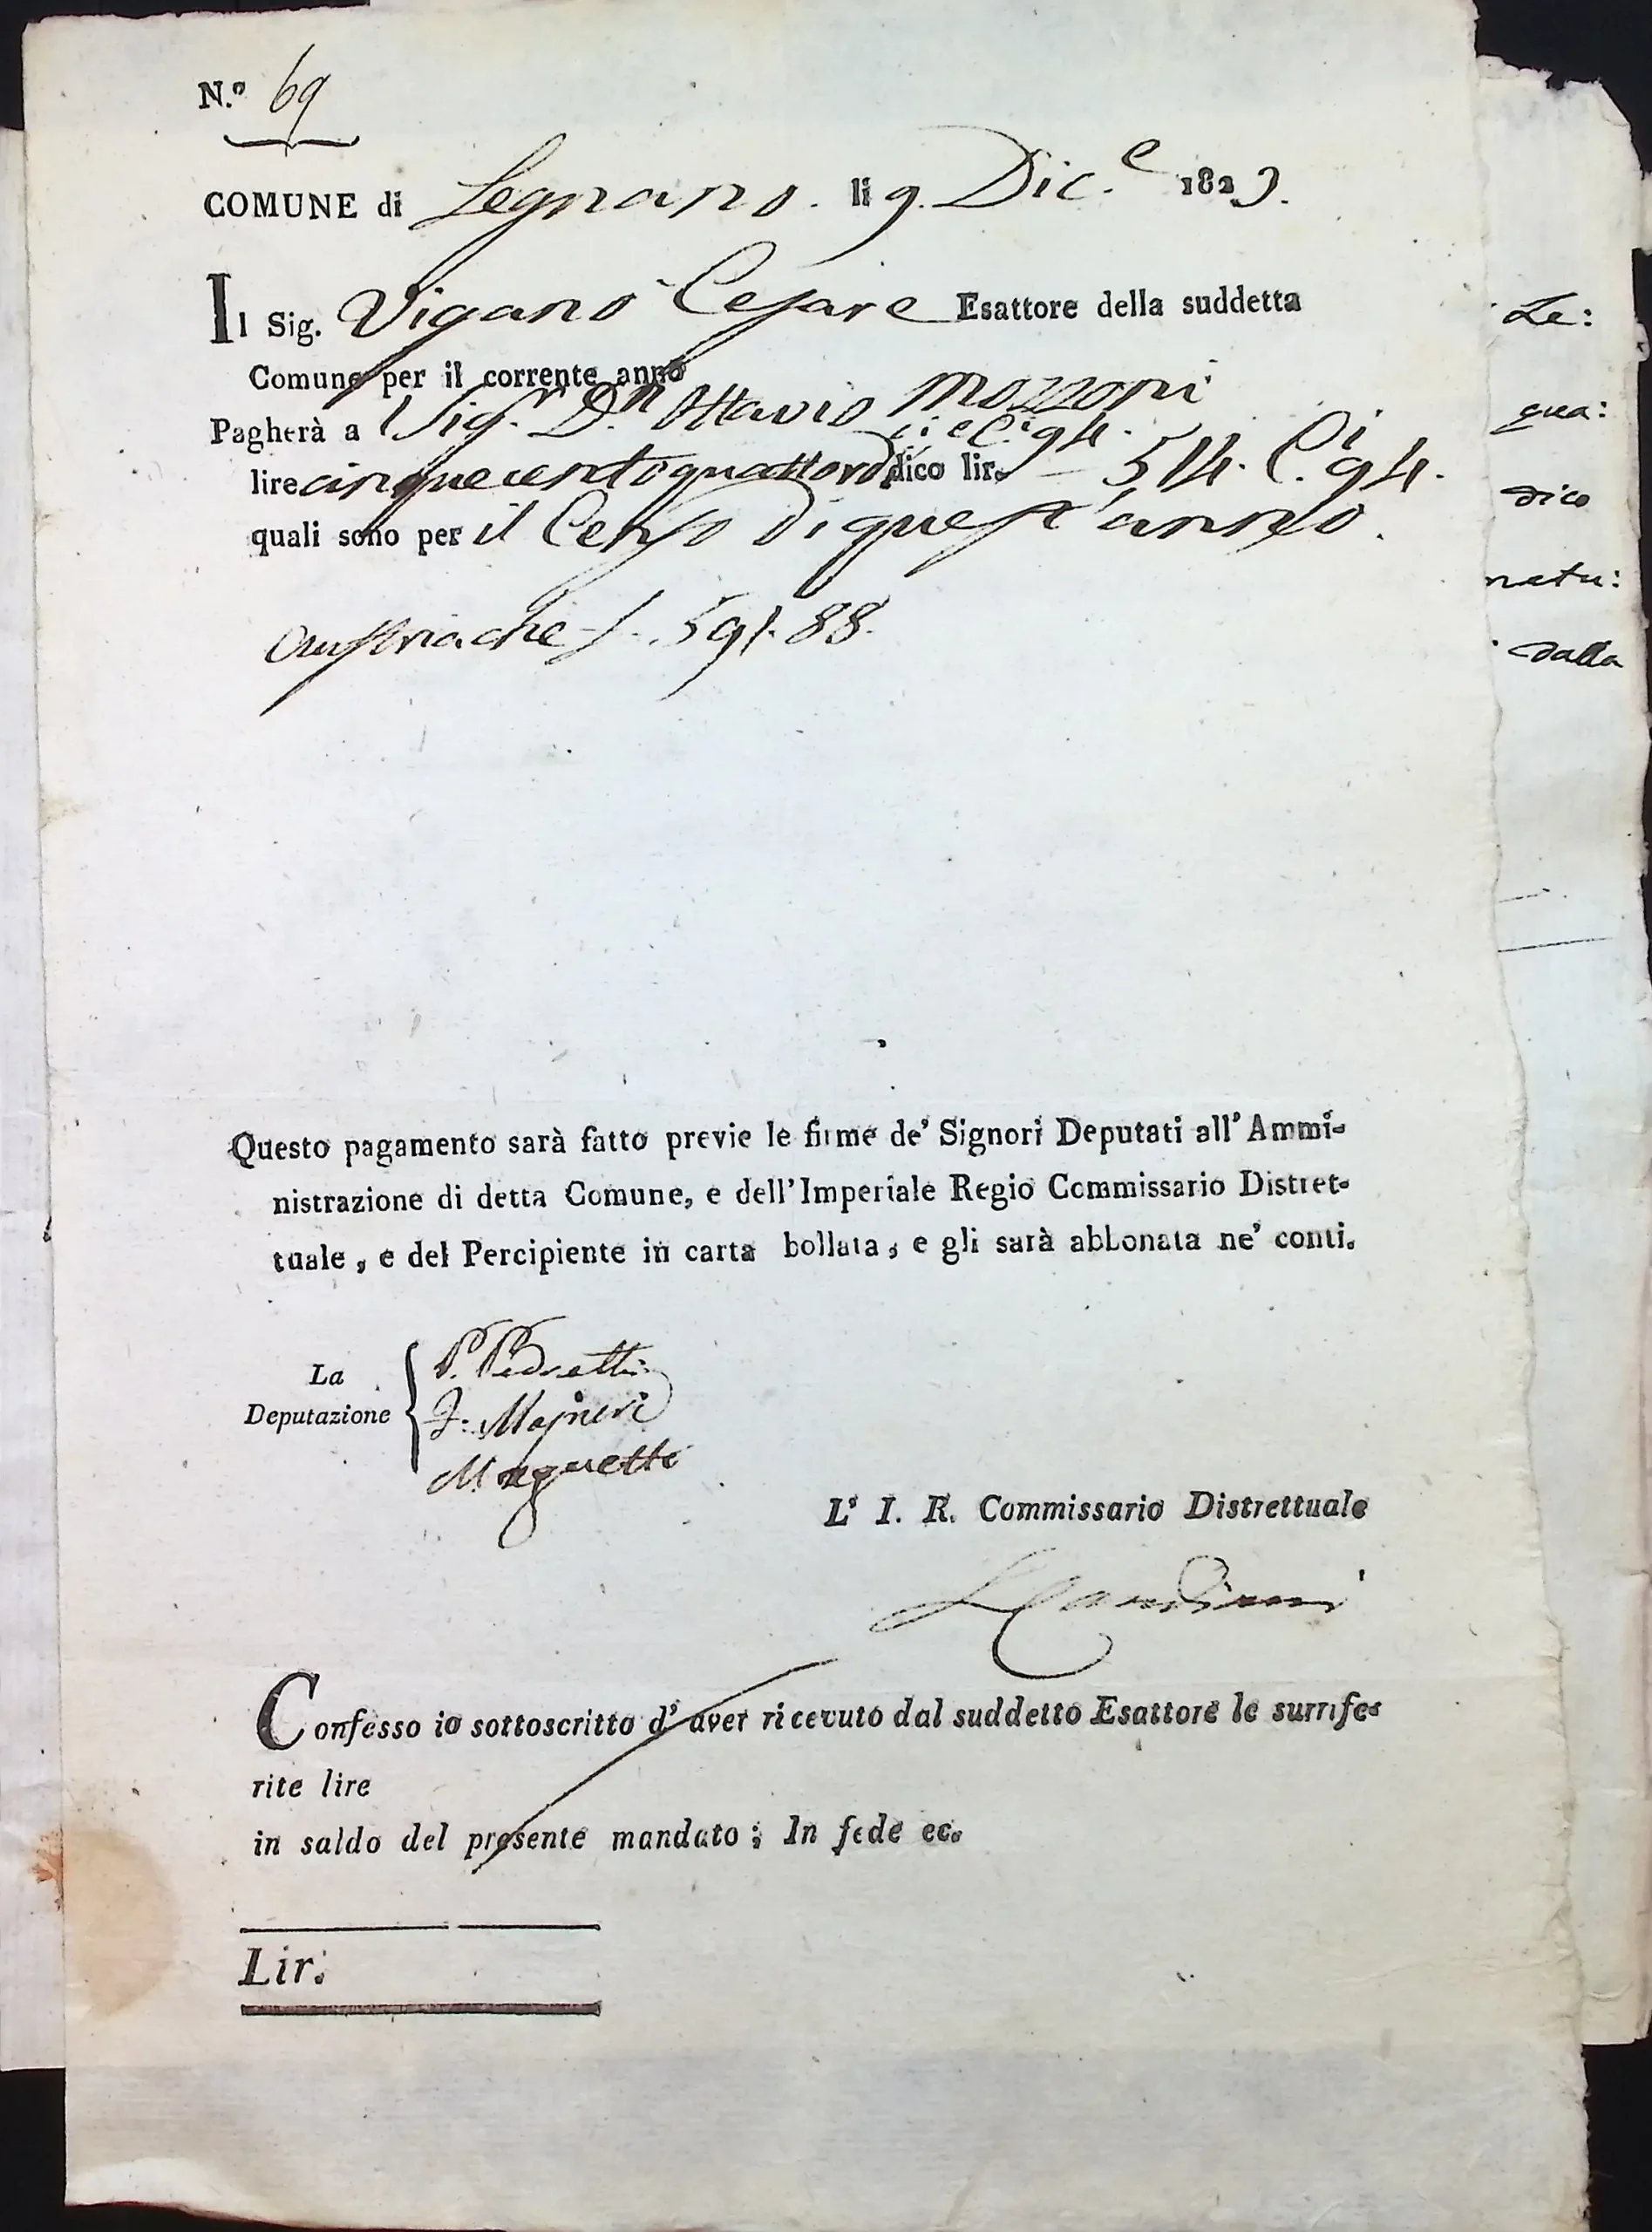 N.º 69
COMUNE di Legnano. li 9. Dic.e 1823.
Il Sig. Viganò Cesare Esattore della suddetta
Comune per il corrente anno
Pagherà al Sig.r D.n Ottavio Mozzoni
lire cinquecentoquattordici: e C.i 94. dico lir. 514. C.i 94.
quali sono per il Censo di quest'anno.
Austriache £. 591. 88.
Questo pagamento sarà fatto previe le firme de' Signori Deputati all'Ammi-
nistrazione di detta Comune, e dell'Imperiale Regio Commissario Distret-
tuale, e del Percipiente in carta bollata, e gli sarà abbonata ne' conti.
La
Deputazione
P. Pedretti
Magnetti
L' I. R. Commissario Distrettuale
Confesso io sottoscritto d' aver ricevuto dal suddetto Esattore le surrife-
rite lire
in saldo del presente mandato; In fede ec.
Lir.
Le:
qua:
dico
natu:
dalla